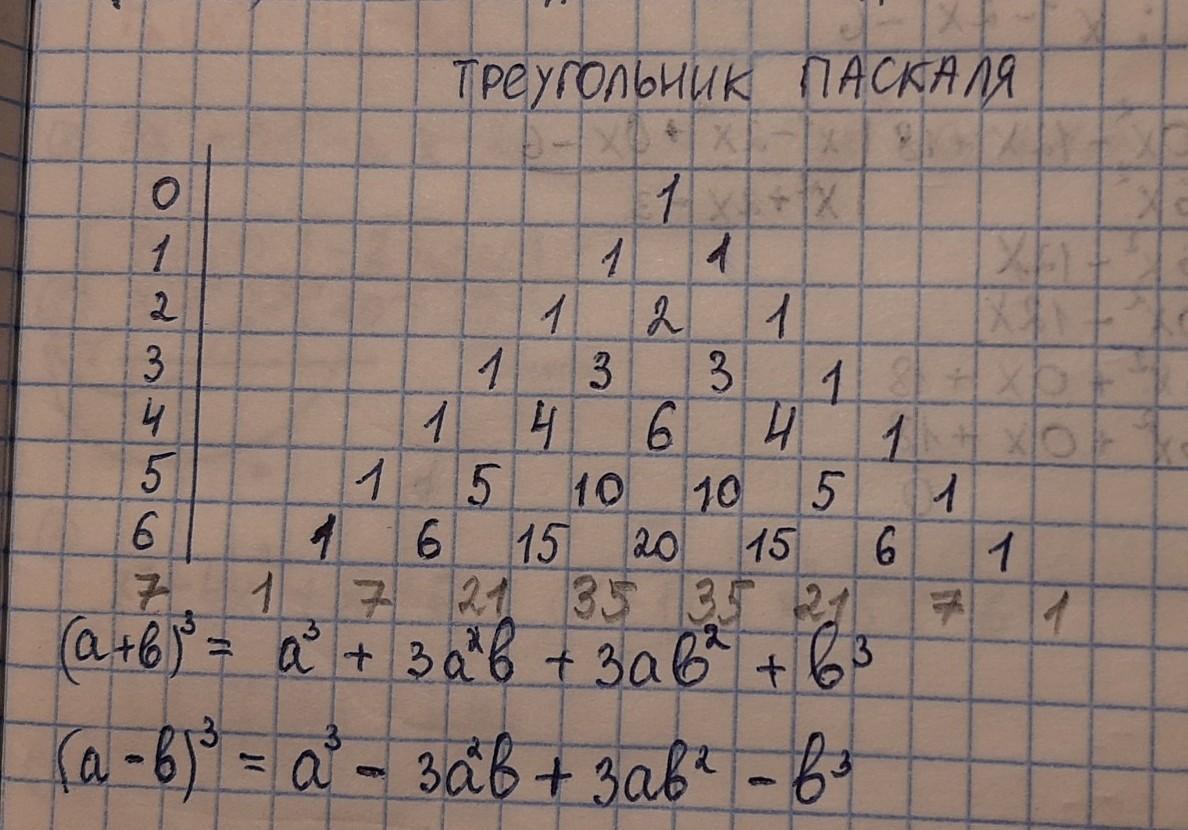 ТРЕУГОЛЬНИК ПАСКАЛЯ
0 1
1 1 1
2 1 2 1
3 1 3 3 1
4 1 4 6 4 1
5 1 5 10 10 5 1
6 1 6 15 20 15 6 1
7 1 7 21 35 35 21 7 1
(а+в)³ = а³ + 3а²в + 3ав² + в³
(а - в)³ = а³ - 3а²в + 3ав² - в³